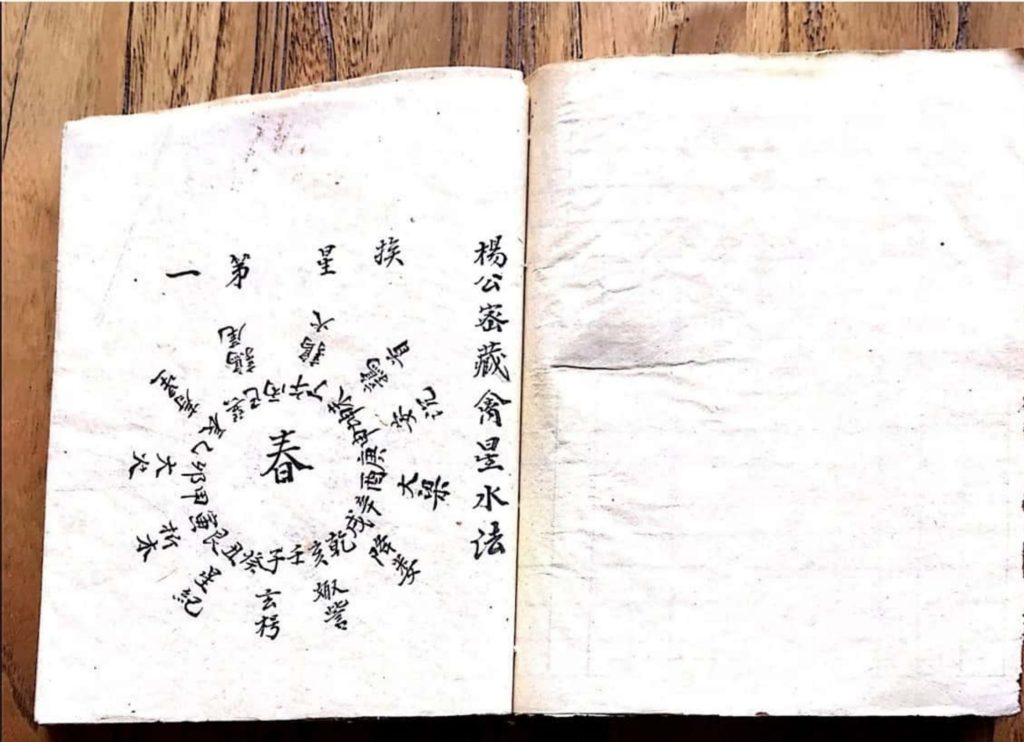 楊公密藏禽星水法
挨星第一
春
午丙巳巽辰乙卯甲寅艮丑癸子壬亥乾戌辛酉庚申坤未丁
鶉火
鶉尾
壽星
大火
析木
星紀
玄枵
娵訾
降婁
大梁
鶉首